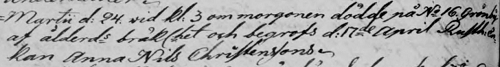 Martii d: 24. vid kl: 3 om morgonen dödde på No 16. Grönby
af ålderds bråklihet och begrofs d: 17de April Rusthålle
kan Anna Nils Christensons